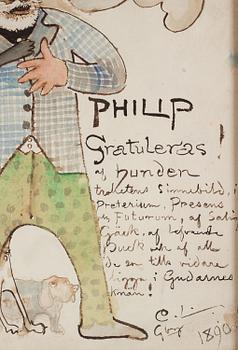 PHILIP
Gratuleras!
af hunden
trohetens Sinnebild, i
Preterium, Presens
Futurum, af Satir
Gäck, af
Buck och af alla
de som tills vidare
ligga i Gudarnes
knän!
C.
Gbg 1890